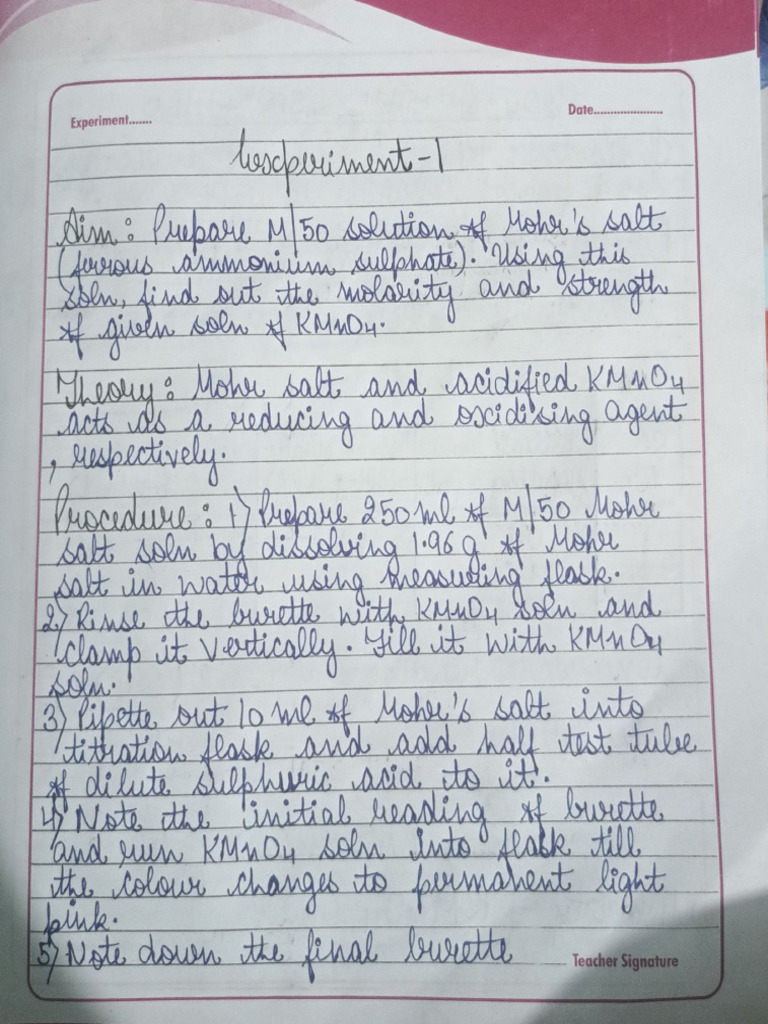 Experiment.......
Date.....................
Experiment-1
Aim: Prepare M/50 solution of Mohr's salt
(ferrous ammonium sulphate). Using this
soln, find out the molarity and strength
of given soln of KMnO4.
Theory: Mohr salt and acidified KMnO4
acts as a reducing and oxidising agent
, respectively.
Procedure: 1) Prepare 250 ml of M/50 Mohr
salt soln by dissolving 1.96 g of Mohr
salt in water using measuring flask.
2) Rinse the burette with KMnO4 soln and
clamp it vertically. Fill it with KMnO4
soln.
3) Pipette out 10 ml of Mohr's salt into
titration flask and add half test tube
of dilute sulphuric acid to it.
4) Note the initial reading of burette
and run KMnO4 soln into flask till
the colour changes to permanent light
pink.
5) Note down the final burette
Teacher Signature